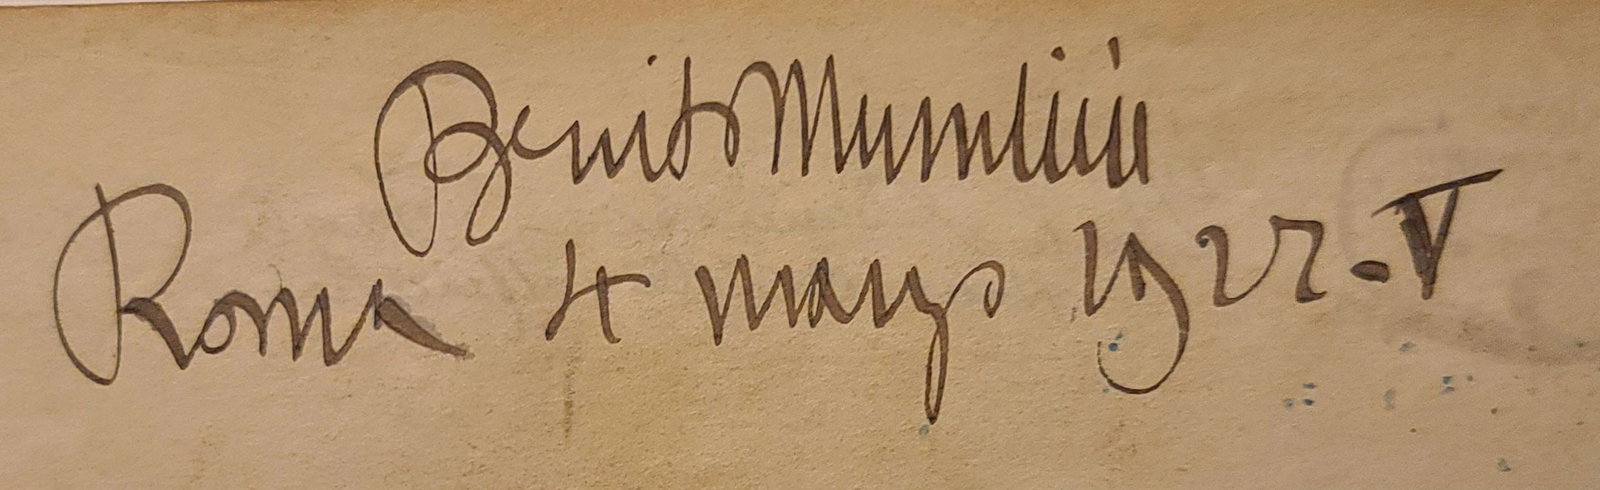 Benito Mussolini
Roma 4 marzo 1927-V